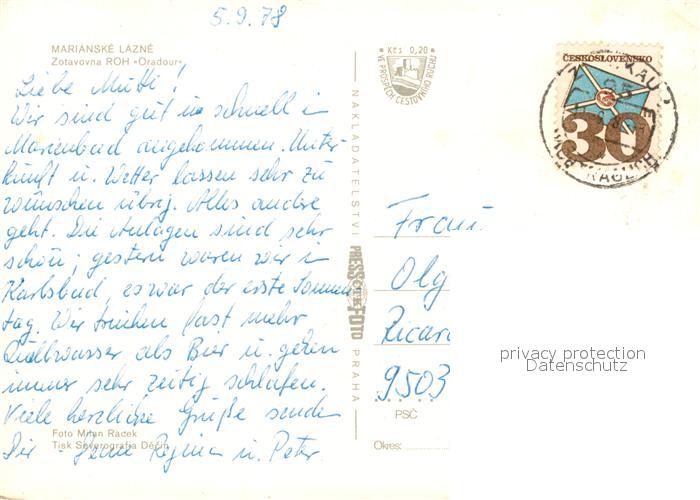 5.9.78
MARIÁNSKÉ LÁZNĚ
Zotavovna ROH »Oradour«
Liebe Mutti!
Wir sind gut u. schnell in
Marienbad angekommen. Unter-
kunft u. Wetter lassen sehr zu
wünschen übrig. Alles andere
geht. Die Anlagen sind sehr
schön; gestern waren wir in
Karlsbad, es war der erste Sonnen-
tag. Wir trinken fast mehr
Quellwasser als Bier u. gehen
immer sehr zeitig schlafen.
Viele herzliche Grüße senden
Dir - Deine Regina u. Peter.
Foto Milan Racek
Tisk Severografia Děčín
NAKLADATELSTVÍ
PRESSFOTO
PRAHA
Kčs 0,20
VE PROSPĚCH CESTOVNÍHO RUCHU
ČESKOSLOVENSKO
30
Frau
Olg
Ricar
9503
PSČ
Okres:
privacy protection
Datenschutz